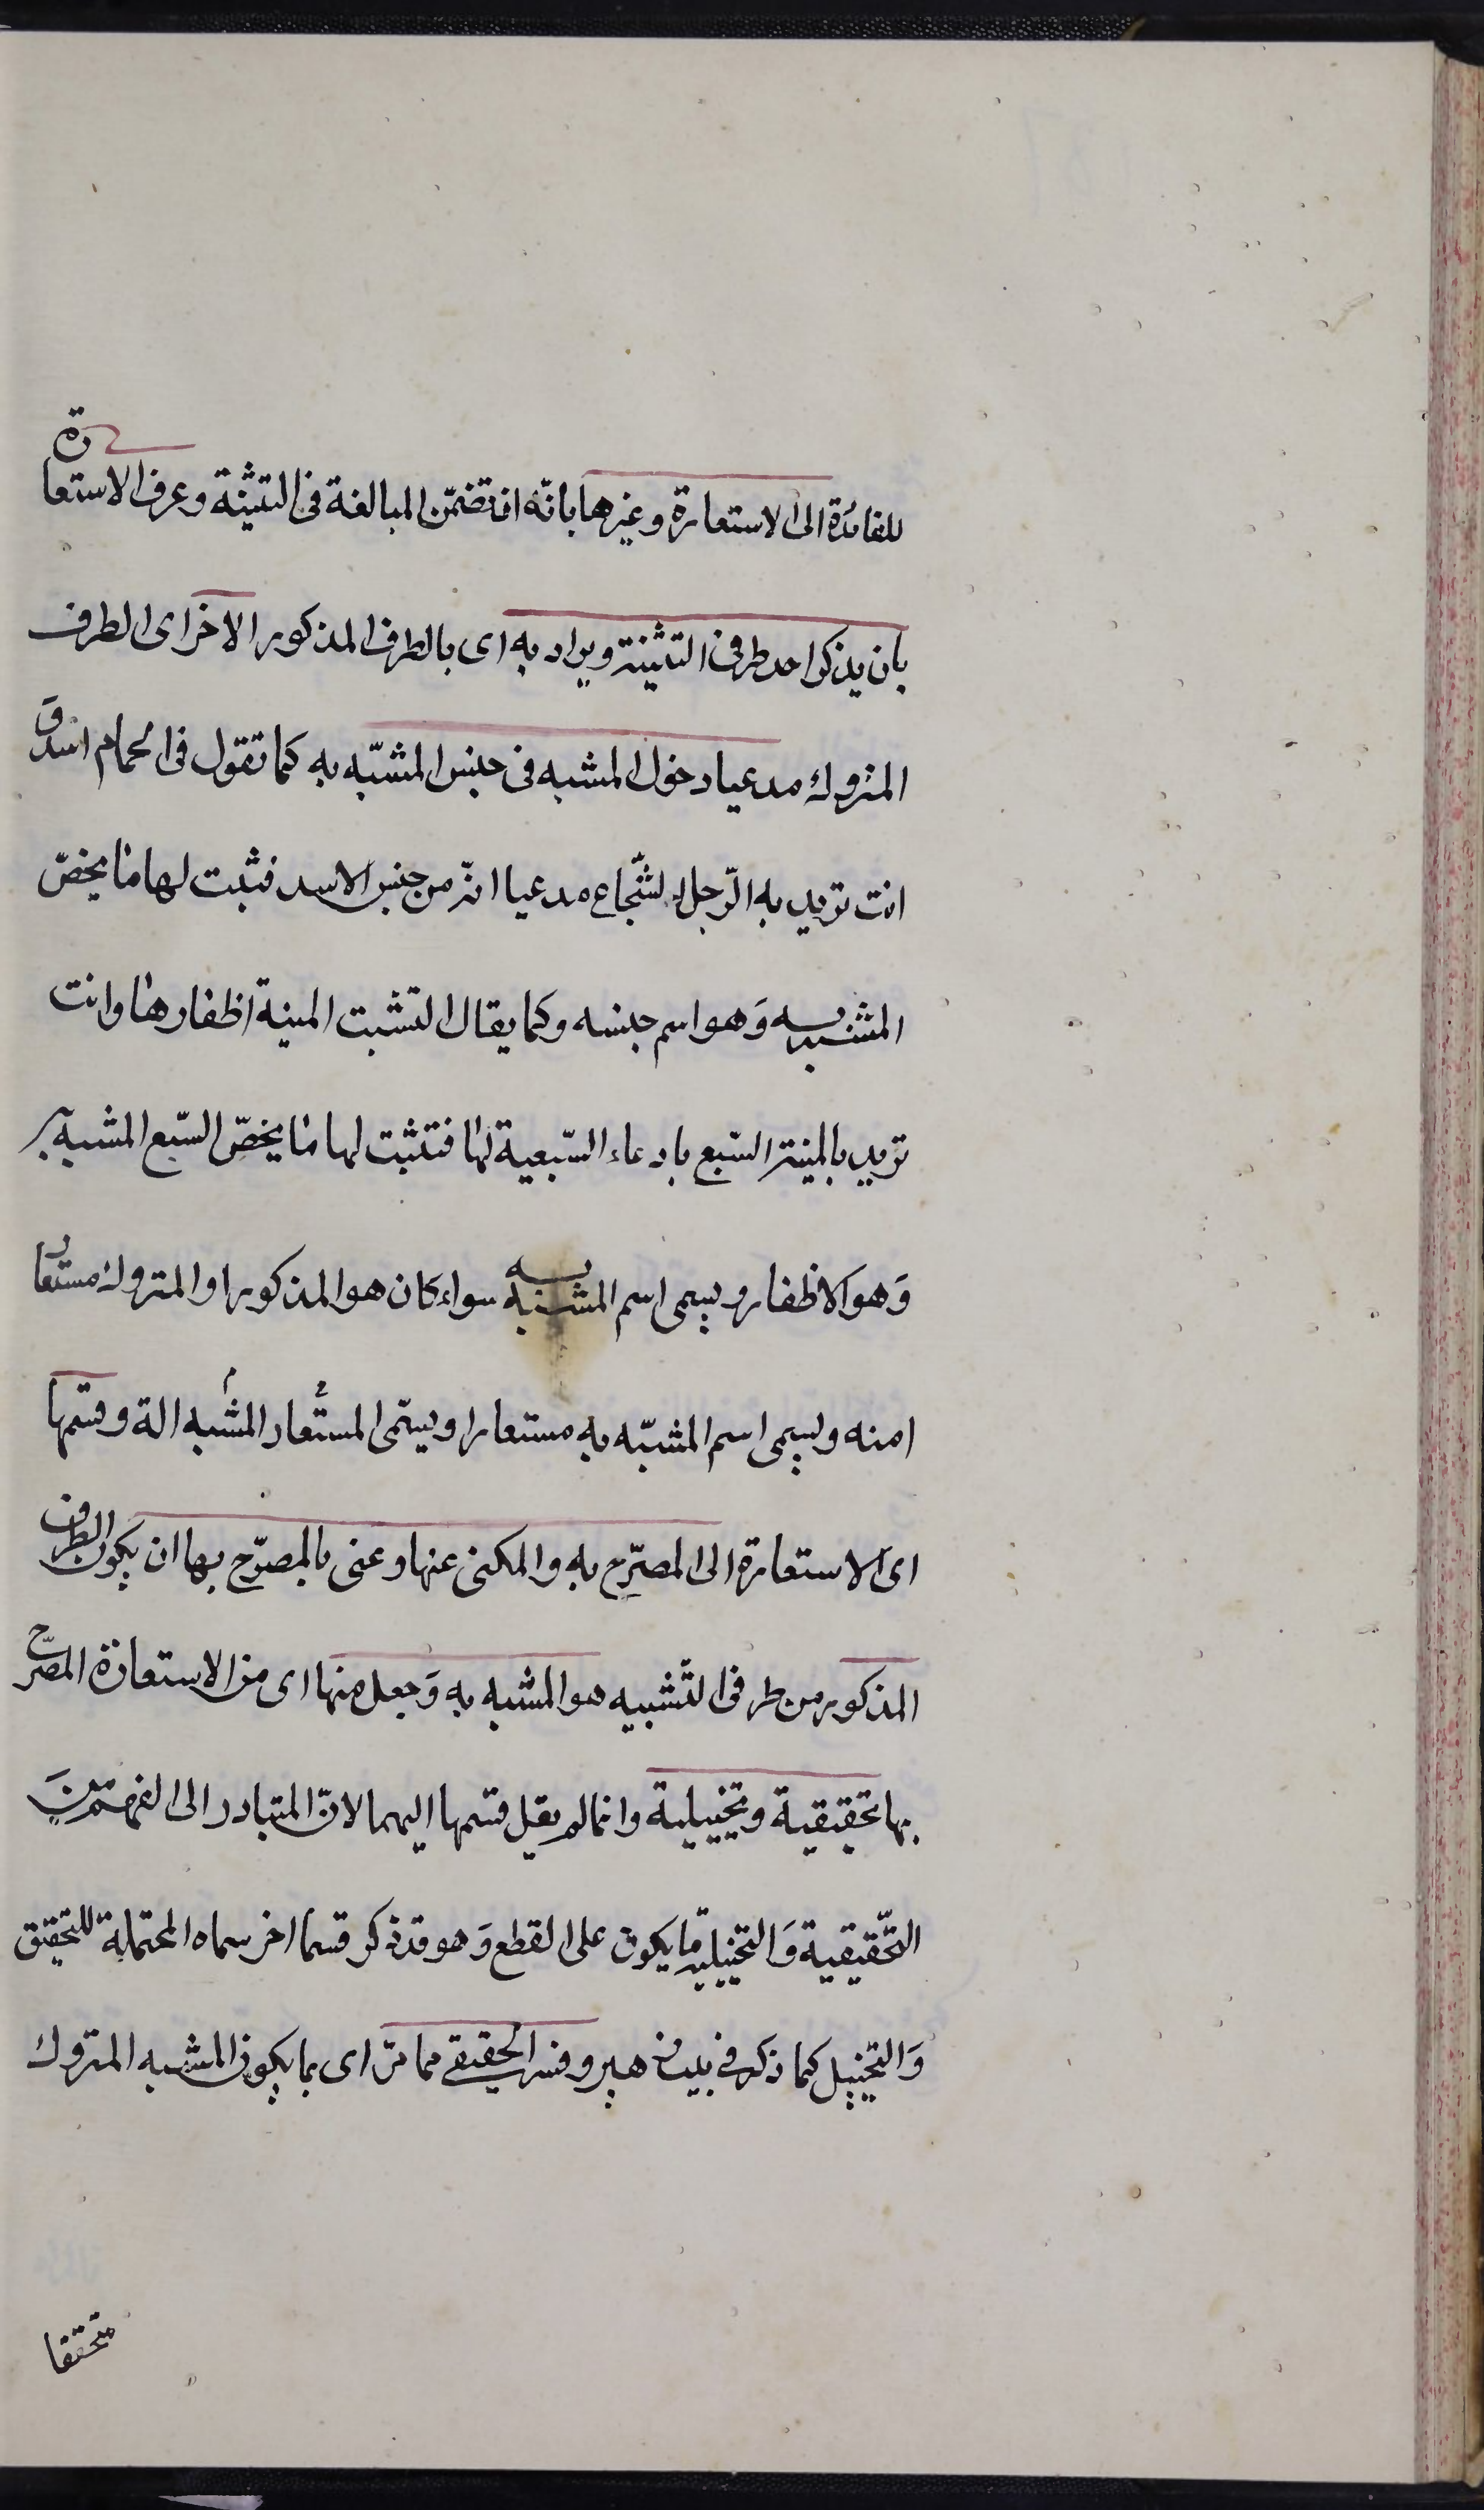 للفائدة الى الاستعارة وغيرها بانّه ان تضمّن المبالغة فى التشبيه وعرف الاستعارة
بان يذكر احد طرفى التشبيه ويراد به اى بالطرف المذكور الاخر اى الطرف
المتروك مدعيا دخول المشبه فى جنس المشبّه به كما تقول فى الحمام اسد و
انت تريد به الرّجل الشّجاع مدعيا انه من جنس الاسد فثبت لها ما يخصّ
المشبه به وَهو اسم جنسه وكما يقال انشبت المنية اظفارها وانت
تريد بالمنية السّبع بادعاء السّبعية لها فتثبت لها ما يخصّ السّبع المشبه به
وَهو الاظفار ويسمى اسم المشبه به سواء كان هو المذكور او المتروك مستعار
امنه ويسمى اسم المشبّه به مستعارا ويسمّى المستعار المشبه الة وقسمها
اى الاستعارة الى المصرّح به والمكنى عنها وعنى بالمصرّح بها ان يكون الطرف
المذكور من طرفى التّشبيه هو المشبه به وَجعل منها اى من الاستعارة المصرّح
بها تحقيقية وتخييلية وانما لم يقل قسمها اليهما لانّ المتبادر الى الفهم مِنَ
التّحقيقية وَالتخييلية ما يكون على القطع وَهو قد ذكر قسما اخر سماه المحتملة للتحقيق
وَالتخييل كما ذكر فى بيت زهير وفسر الحقيقى مما مرّ اى بما يكون المشبه المتروك
متحققا